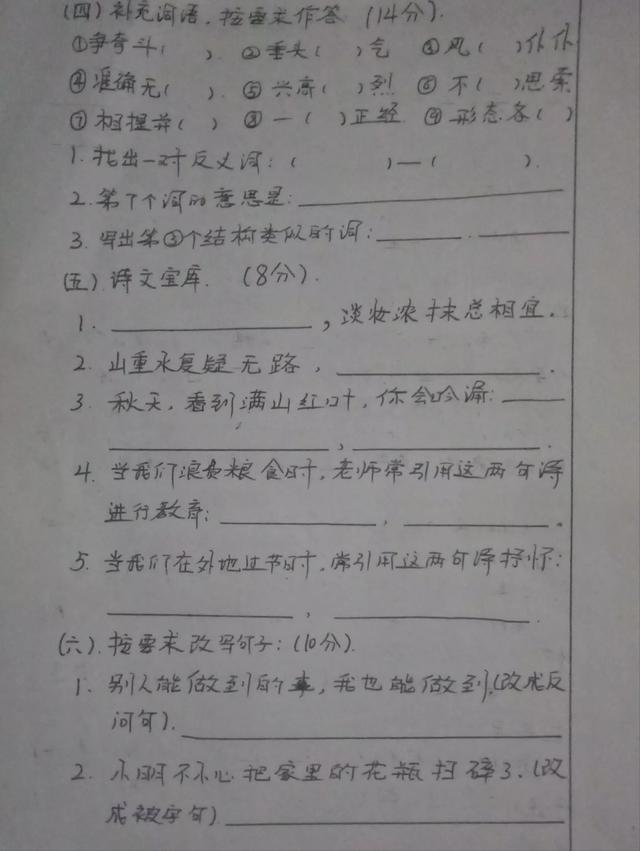 (四)补充词语,按要求作答(14分).
①争奇斗( ). ②垂头( )气 ③风( )仆仆
④准确无( ). ⑤兴高( )烈 ⑥不( )思索
⑦相提并( ) ⑧一( )正经 ⑨形态各( )
1.找出一对反义词:( )—( ).
2.第⑦个词的意思是:
3.写出第⑤个结构类似的词:
(五)诗文宝库.(8分).
1. ,淡妆浓抹总相宜.
2.山重水复疑无路, .
3.秋天,看到满山红叶,你会吟诵:
, .
4.当我们浪费粮食时,老师常引用这两句诗
进行教育: , 。
5.当我们在外地过节时,常引用这两句诗抒怀:
, .
(六).按要求改写句子:(10分).
1.别人能做到的事,我也能做到.(改成反
问句).
2.小明不小心把家里的花瓶打碎了.(改
成被字句)